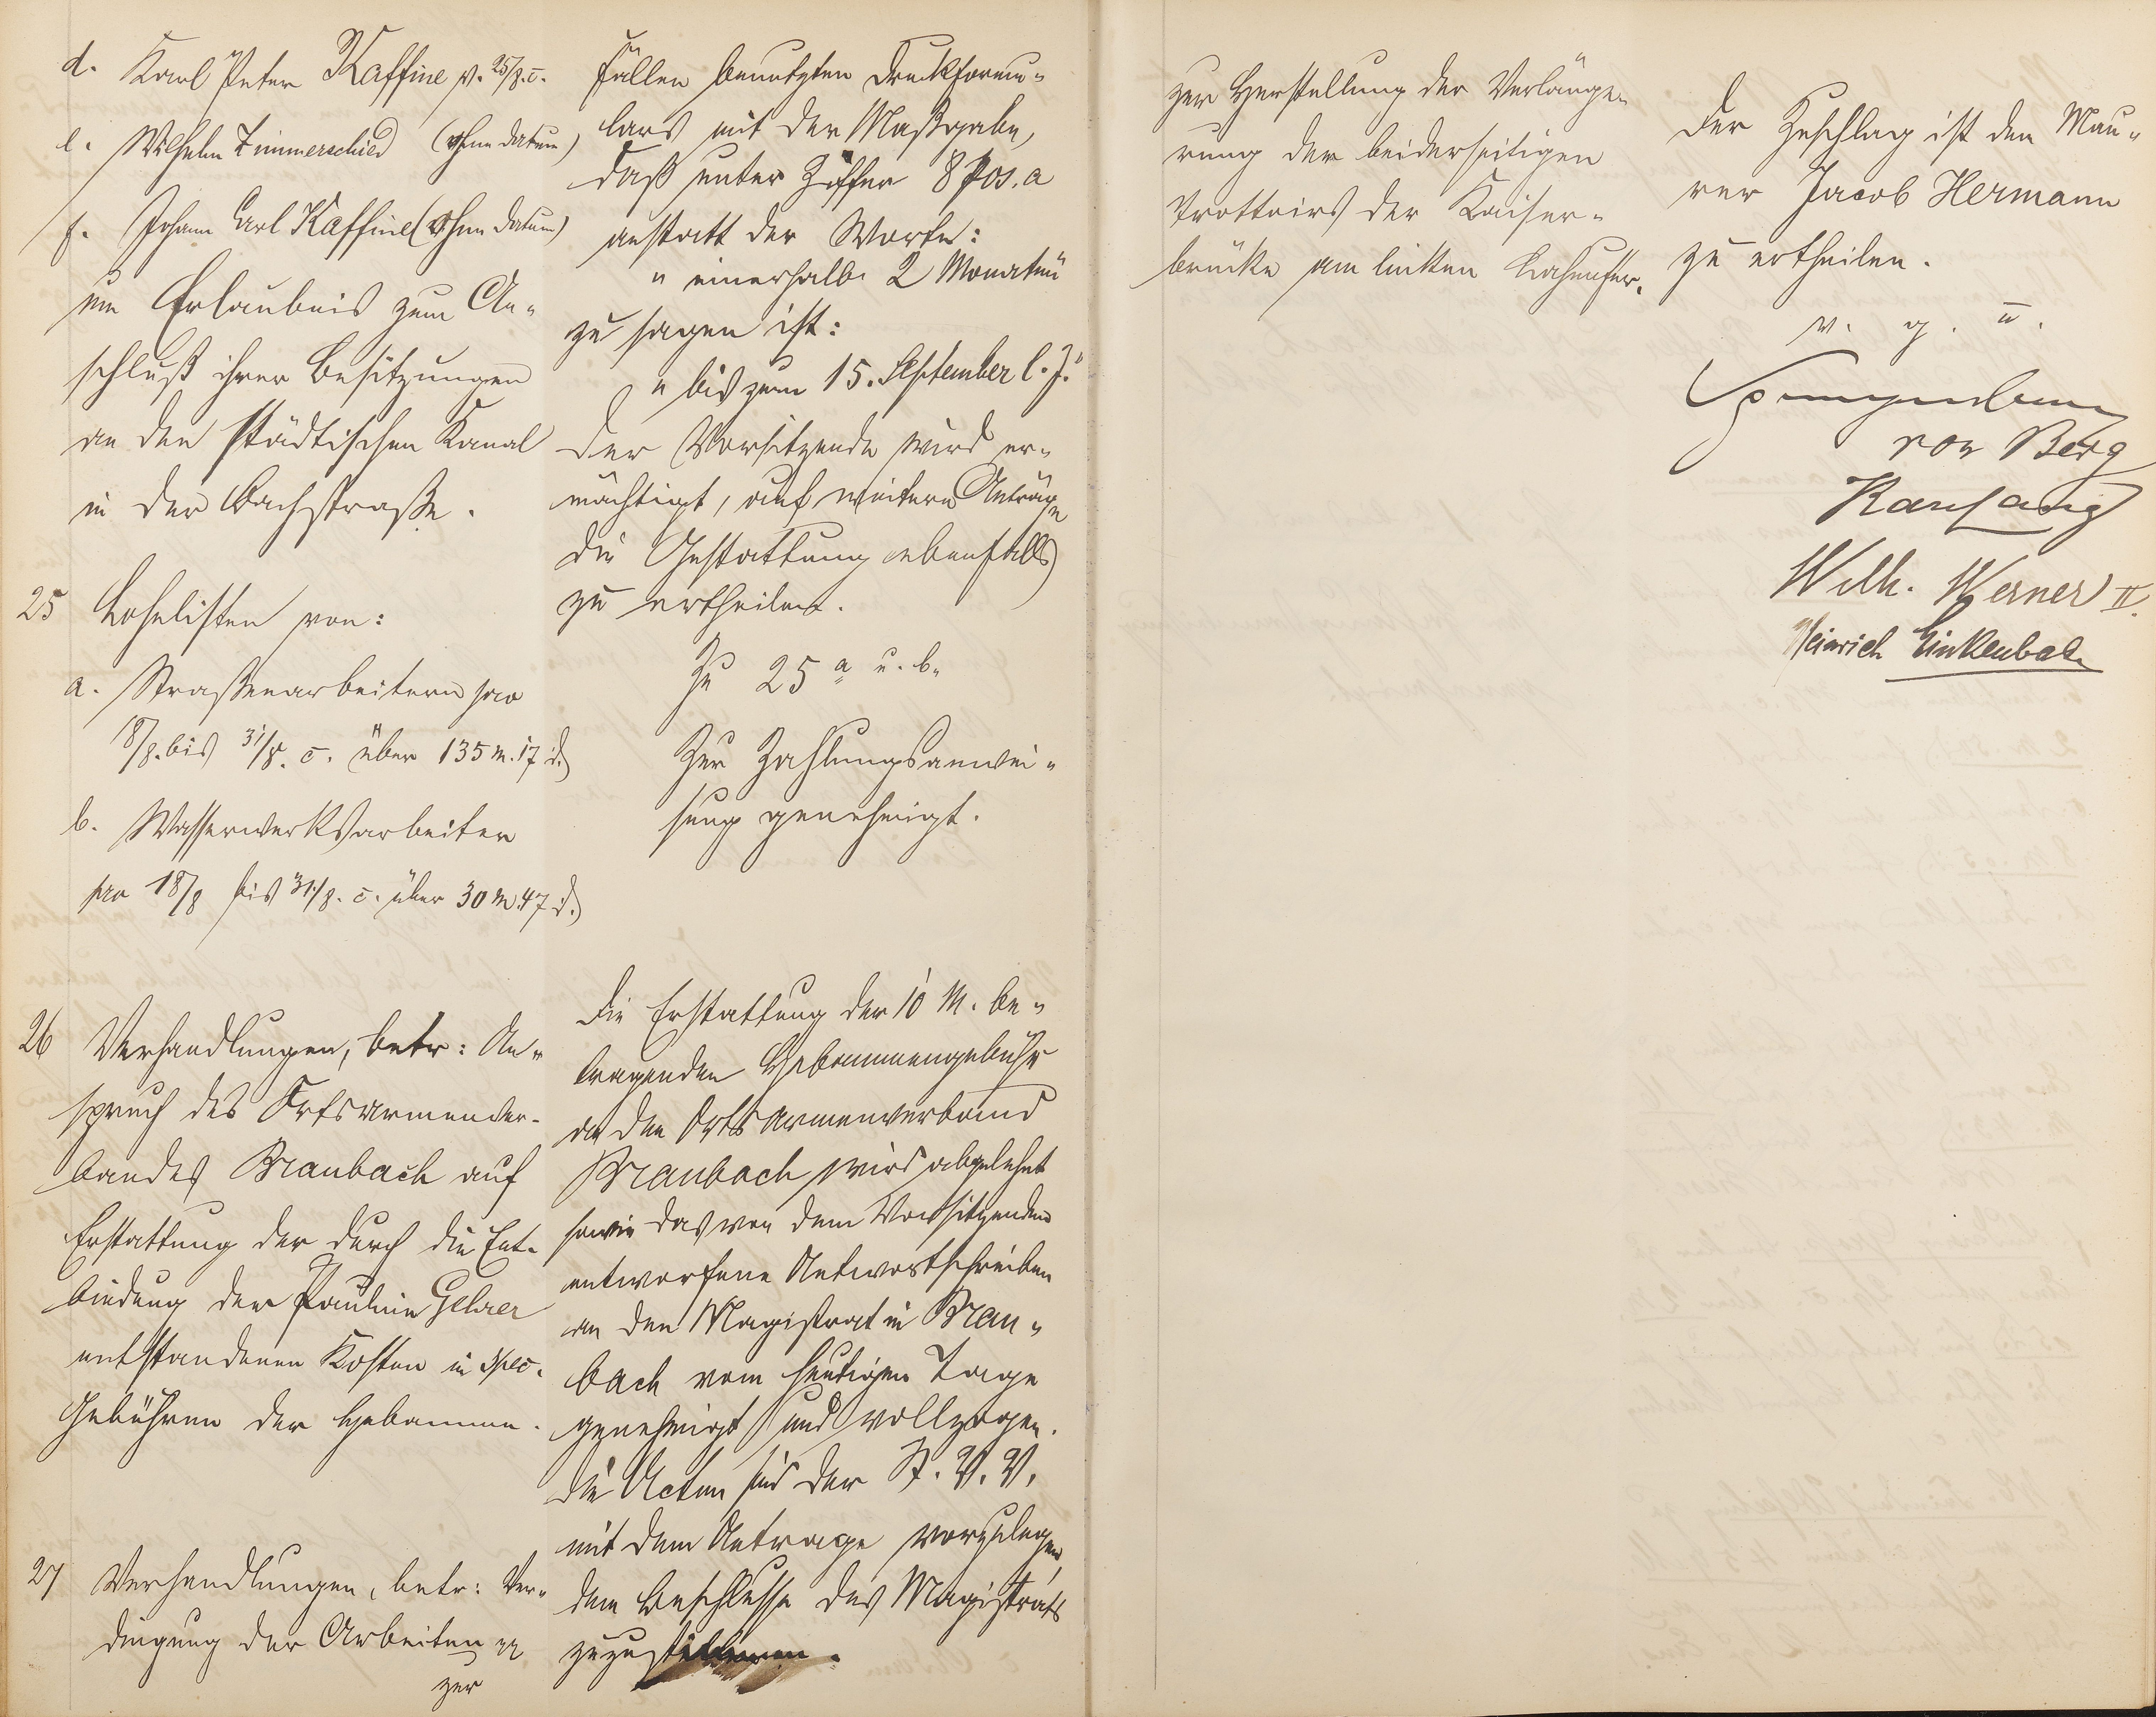 d. Karl Peter Kaffine v. 25/8. c.
e. Wilhelm Zimmerschied (ohne Datum)
f. Johann Carl Kaffine (ohne Datum)
um Erlaubnis zum An-
schluß ihrer Besitzungen
an den städtischen Kanal
in der Bachstraße.
25 Lohnlisten von:
a. Straßenarbeitern pro
18/8. bis 31/8. c. über 135 M. 17 d.
b. Wasserwerksarbeiter
pro 18/8 bis 31/8. c. über 30 M. 47 d.
26 Verhandlungen, betr: An-
spruch des Ortsarmenver-
bandes Braubach auf
Erstattung der durch die Ent-
bindung der Pauline Gehrer
entstandenen Kosten in spec.
Gebühren der Hebamme.
27 Verhandlungen, betr: Ver-
dingung der Arbeiten
zur
Fällen benutzten Druckformu-
lars mit der Maßgabe,
daß unter Ziffer 8 Pos. a
anstatt der Worte:
"innerhalb 2 Monaten"
zu sagen ist:
"bis zum 15. September l. J."
Der Vorsitzende wird er-
mächtigt, auf weitere Anträge
die Gestattung ebenfalls
zu ertheilen.
Zu 25 a u. b.
Zur Zahlungsanwei-
sung genehmigt.
Die Erstattung der 10 M. be-
tragenden Hebammengebühr
an den Ortsarmenverband
Braubach wird abgelehnt
sowie das von dem Vorsitzenden
entworfene Antwortschreiben
an den Magistrat in Brau-
bach vom heutigen Tage
genehmigt und vollzogen.
Die Acten sind der St. V. V.
mit dem Antrage vorzulegen,
dem Beschlusse des Magistrats
zuzustimmen.
zur Herstellung der Verlänge-
rung der beiderseitigen
Trottoirs der Kaiser-
brücke am linken Lahnufer.
Der Zuschlag ist dem Mau-
rer Jacob Hermann
zu ertheilen.
v. g. u.
Spangenberg
von Berg
Wilh. Werner II.
Heinrich Linkenbach